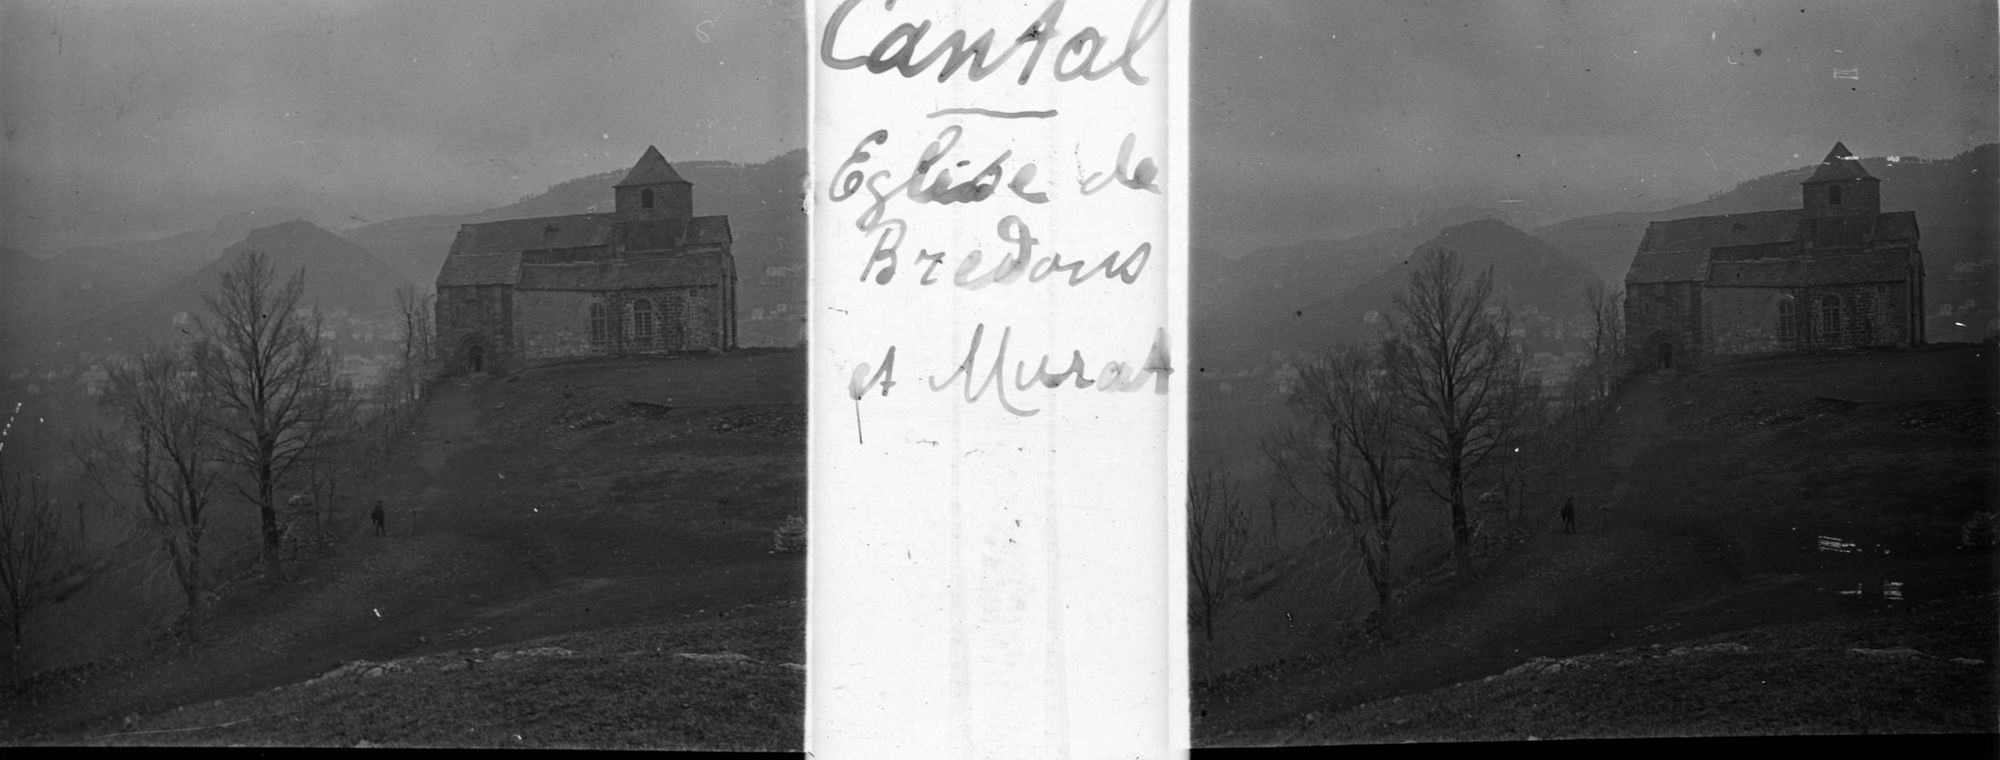 Cantal
Eglise de
Bredons
et Murat